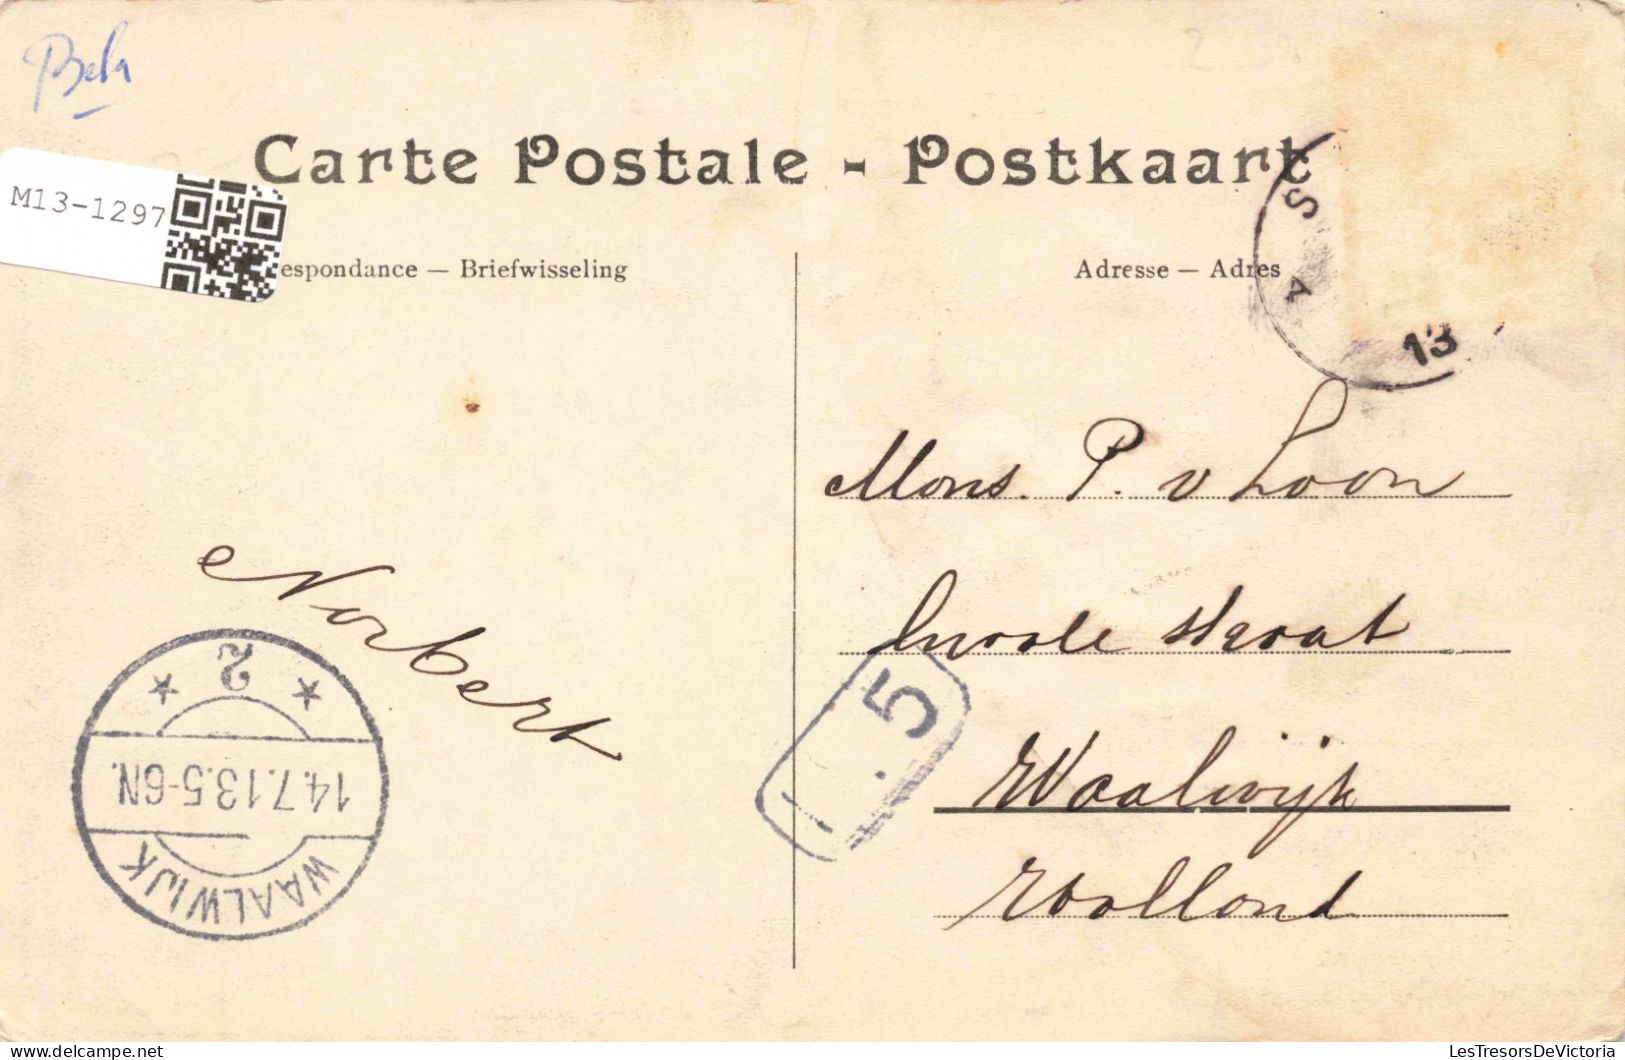 Bela
M13-1297
Carte Postale - Postkaart
espondance — Briefwisseling
Adresse — Adres
S A
13
Mons. P. v Loon
straat
Waalwijk
Holland
Norbert
2
14.7.13.5-6N.
WAALWIJK
1.5
delcampe.net
LesTresorsDeVictoria